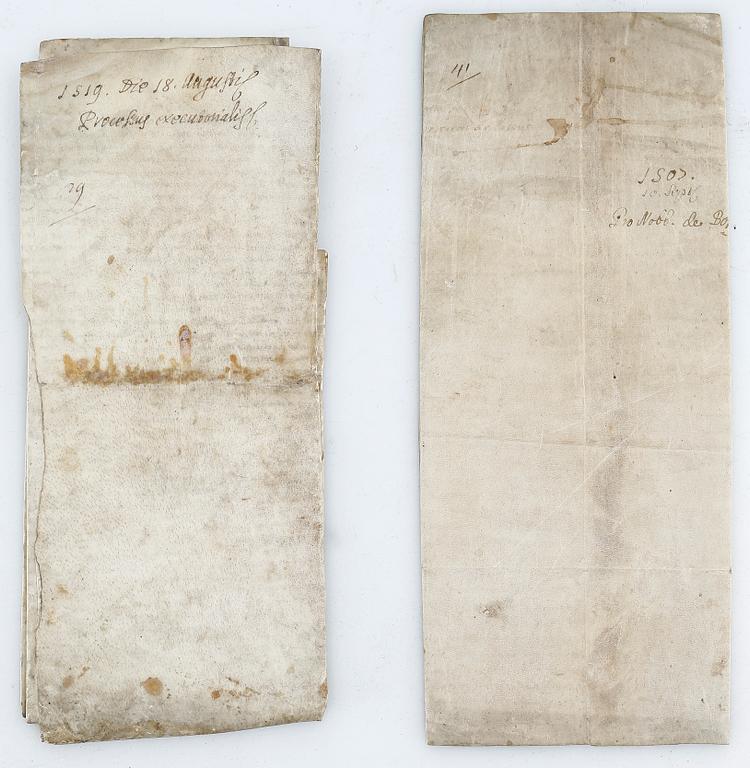 1519. Die 18. Augustj
Processus executorialis
29
41
1507.
10. Sept
Pro Nob. de